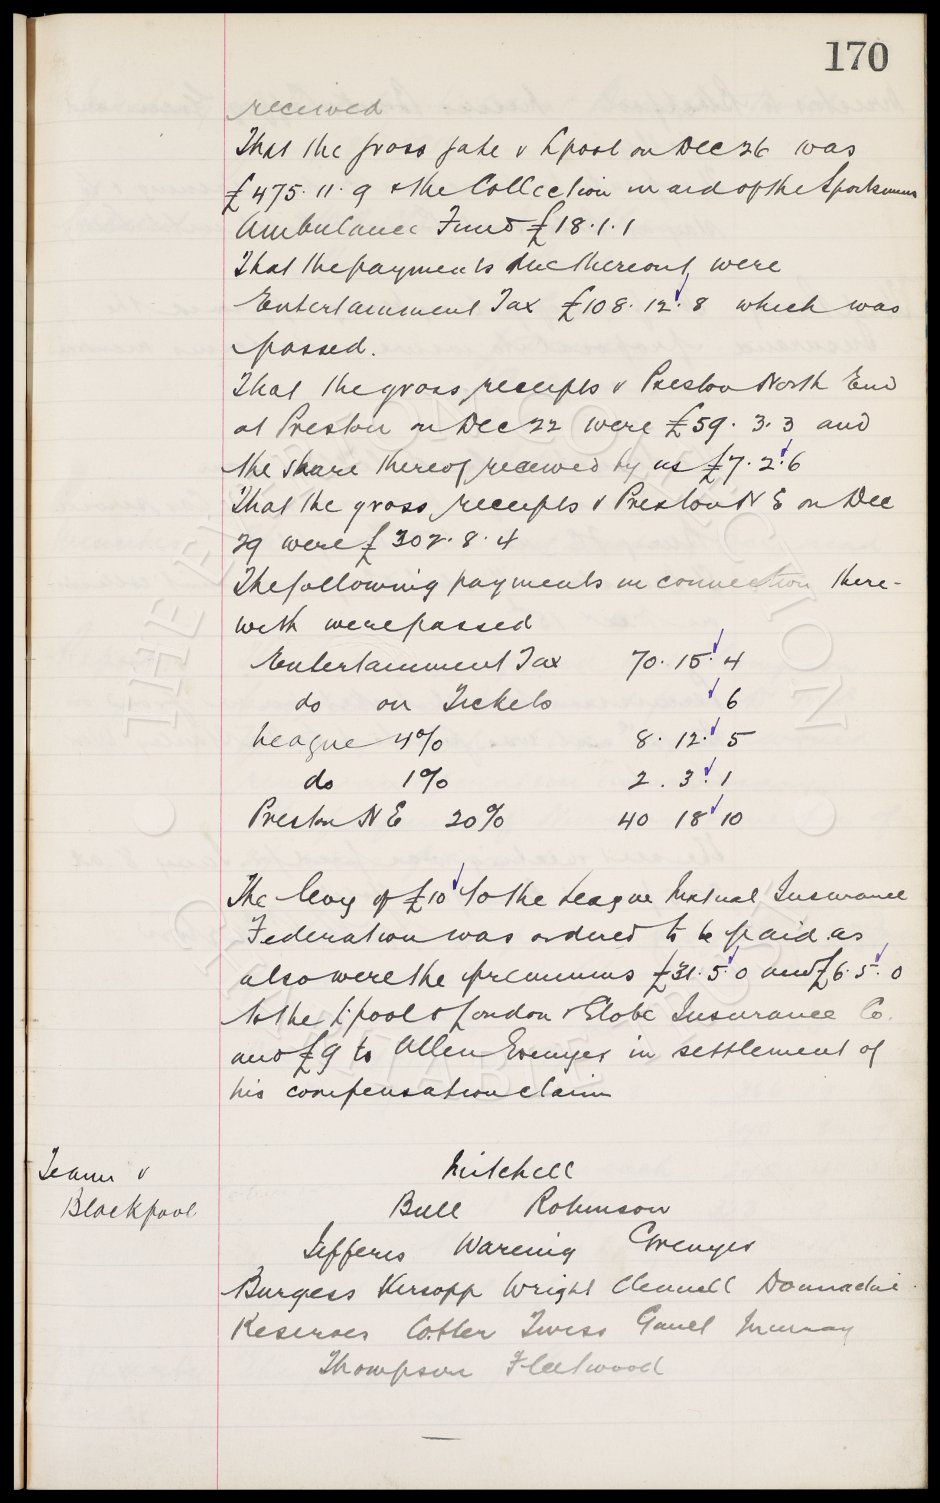 170
received
That the gross gate v Lpool on Dec 26 was
£475. 11. 9 & the Collection in aid of the Sportsmens
Ambulance Fund £18. 1. 1
That the payments due thereout were
Entertainment Tax £108. 12. 8 which was
passed.
That the gross receipts v Preston North End
at Preston on Dec 22 were £59. 3. 3 and
the share thereof received by us £7. 2. 6
That the gross receipts v Preston N E on Dec
29 were £302. 8. 4
The following payments in connection there-
with were passed
Entertainment Tax 70. 15. 4
do on Tickets 6
League 4% 8. 12. 5
do 1% 2. 3. 1
Preston N E 20% 40 18 10
The levy of £10 to the League Mutual Insurance
Federation was ordered to be paid as
also were the premiums £31. 5. 0 and £6. 5. 0
to the L'pool & London & Globe Insurance Co.
and £9 to Allen Grenyer in settlement of
his compensation claim
Team v
Blackpool
Mitchell
Bull Robinson
Jefferis Wareing Grenyer
Burgess Kirsopp Wright Clennell Donnachie
Reserves Cotter Twiss Gault Murray
Thompson Fleetwood